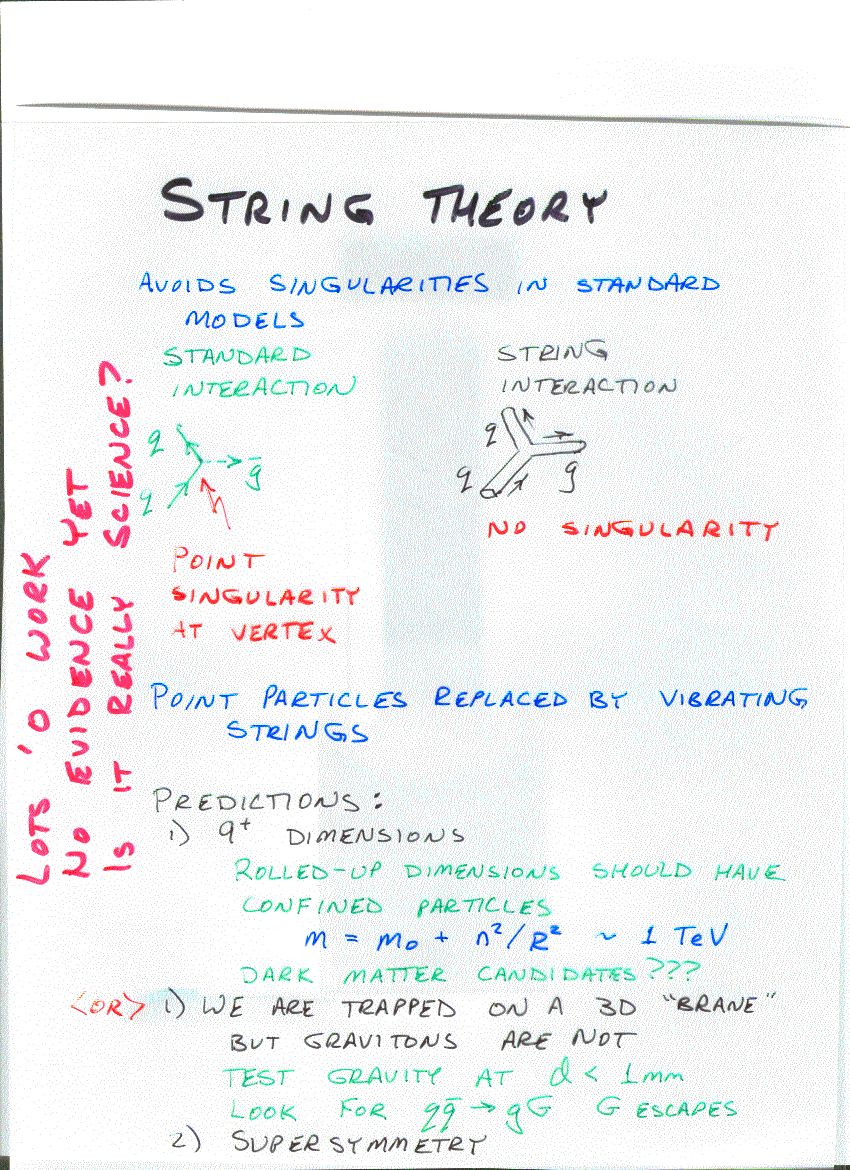 STRING THEORY
AVOIDS SINGULARITIES IN STANDARD
MODELS
STANDARD
INTERACTION
q
q
g̅
POINT
SINGULARITY
AT VERTEX
STRING
INTERACTION
q
q
g
NO SINGULARITY
LOTS 'O WORK
NO EVIDENCE YET
IS IT REALLY SCIENCE?
POINT PARTICLES REPLACED BY VIBRATING
STRINGS
PREDICTIONS:
1) 9⁺ DIMENSIONS
ROLLED-UP DIMENSIONS SHOULD HAVE
CONFINED PARTICLES
m = m₀ + n²/R² ~ 1 TeV
DARK MATTER CANDIDATES???
<OR> 1) WE ARE TRAPPED ON A 3D "BRANE"
BUT GRAVITONS ARE NOT
TEST GRAVITY AT d < 1mm
LOOK FOR qq̅ → gG G ESCAPES
2) SUPERSYMMETRY